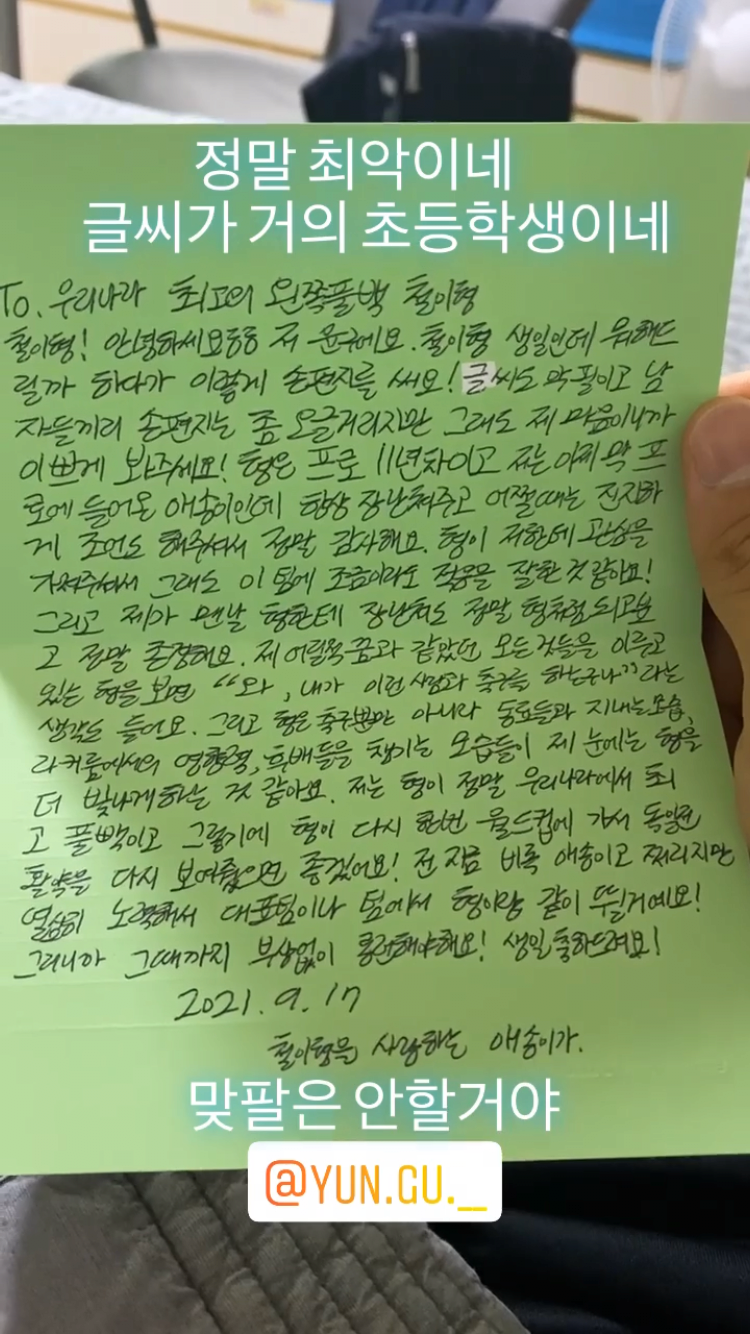 정말 최악이네
글씨가 거의 초등학생이네
To. 우리나라 최고의 왼쪽풀백 철이형
철이형! 안녕하세요 저 윤구에요. 철이형 생일인데 뭐해드
릴까 하다가 이렇게 손편지를 써요! 글씨도 악필이고 남
자들끼리 손편지는 좀 오글거리지만 그래도 제 마음이니까
이쁘게 봐주세요! 형은 프로 11년차이고 저는 이제 막 프
로에 들어온 애송이인데 항상 장난쳐주고 어쩔때는 진지하
게 조언도 해주셔서 정말 감사해요. 형이 저한테 관심을
가져주셔서 그래도 이 팀에 조금이라도 적응을 잘한 것 같아요!
그리고 제가 맨날 형한테 장난쳐도 정말 형처럼 되고싶
고 정말 존경해요. 제 어릴적 꿈과 같았던 모든것들을 이루고
있는 형을 보면 “와, 내가 이런 사람과 축구를 하는구나”라는
생각도 들어요. 그리고 형은 축구뿐만 아니라 동료들과 지내는모습,
라커룸에서의 영향력, 후배들을 챙기는 모습들이 제 눈에는 형을
더 빛나게하는 것 같아요. 저는 형이 정말 우리나라에서 최
고 풀백이고 그렇기에 형이 다시 한번 월드컵에 가서 독일전
활약을 다시 보여줬으면 좋겠어요! 전 지금 비록 애송이고 쩌리지만
열심히 노력해서 대표팀이나 팀에서 형이랑 같이 뛸거예요!
그러니까 그때까지 부상없이 롱런해야해요! 생일축하드려요!
2021. 9. 17
철이형을 사랑하는 애송이가.
맞팔은 안할거야
@YUN.GU.__